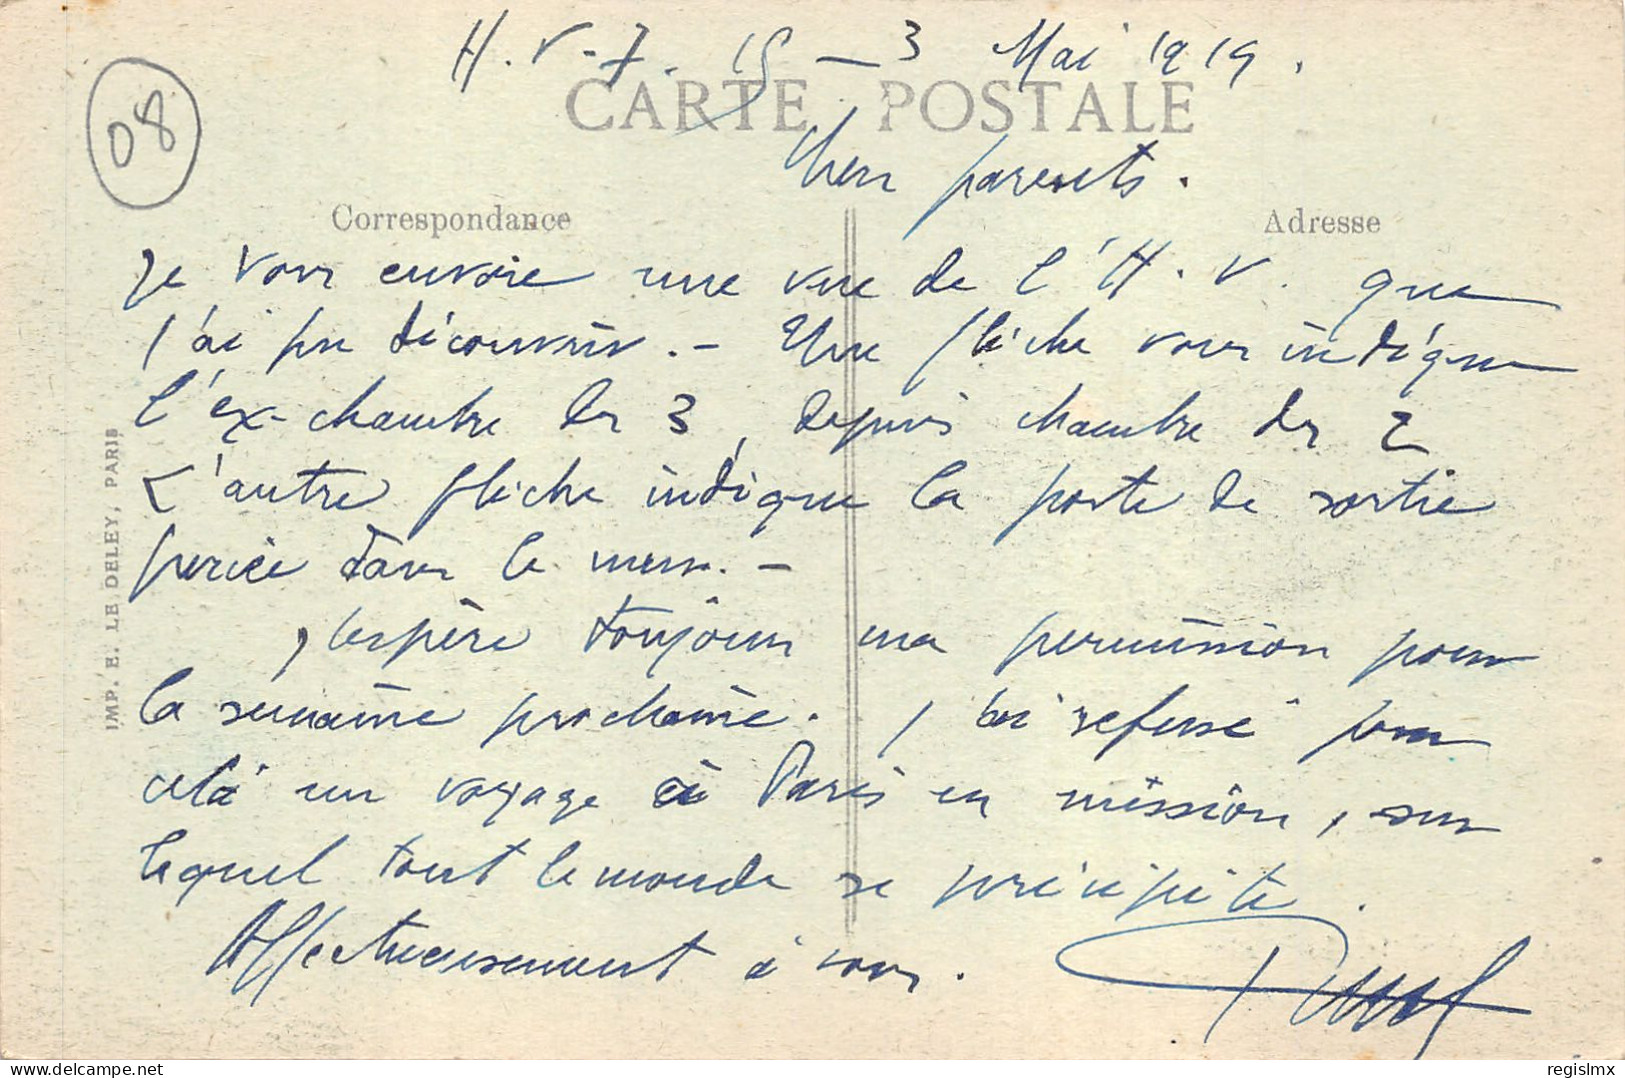 H.V-7. 15 — 3 Mai 1919.
08
CARTE POSTALE
Chers parents.
Correspondance
Adresse
Je vous envoie une vue de l'H.V. que
j'ai pu découvrir. — Une flèche vous indique
l'ex-chambre des 3, depuis chambre des 2
L'autre flèche indique la porte de sortie
percée dans le mur. —
J'espère toujours ma permission pour
la semaine prochaine. J'ai refusé pour
celà un voyage à Paris en mission, sur
lequel tout le monde se précipite.
Affectueusement à vous.
IMP. E. LE DELEY, PARIS
delcampe.net
regislmx